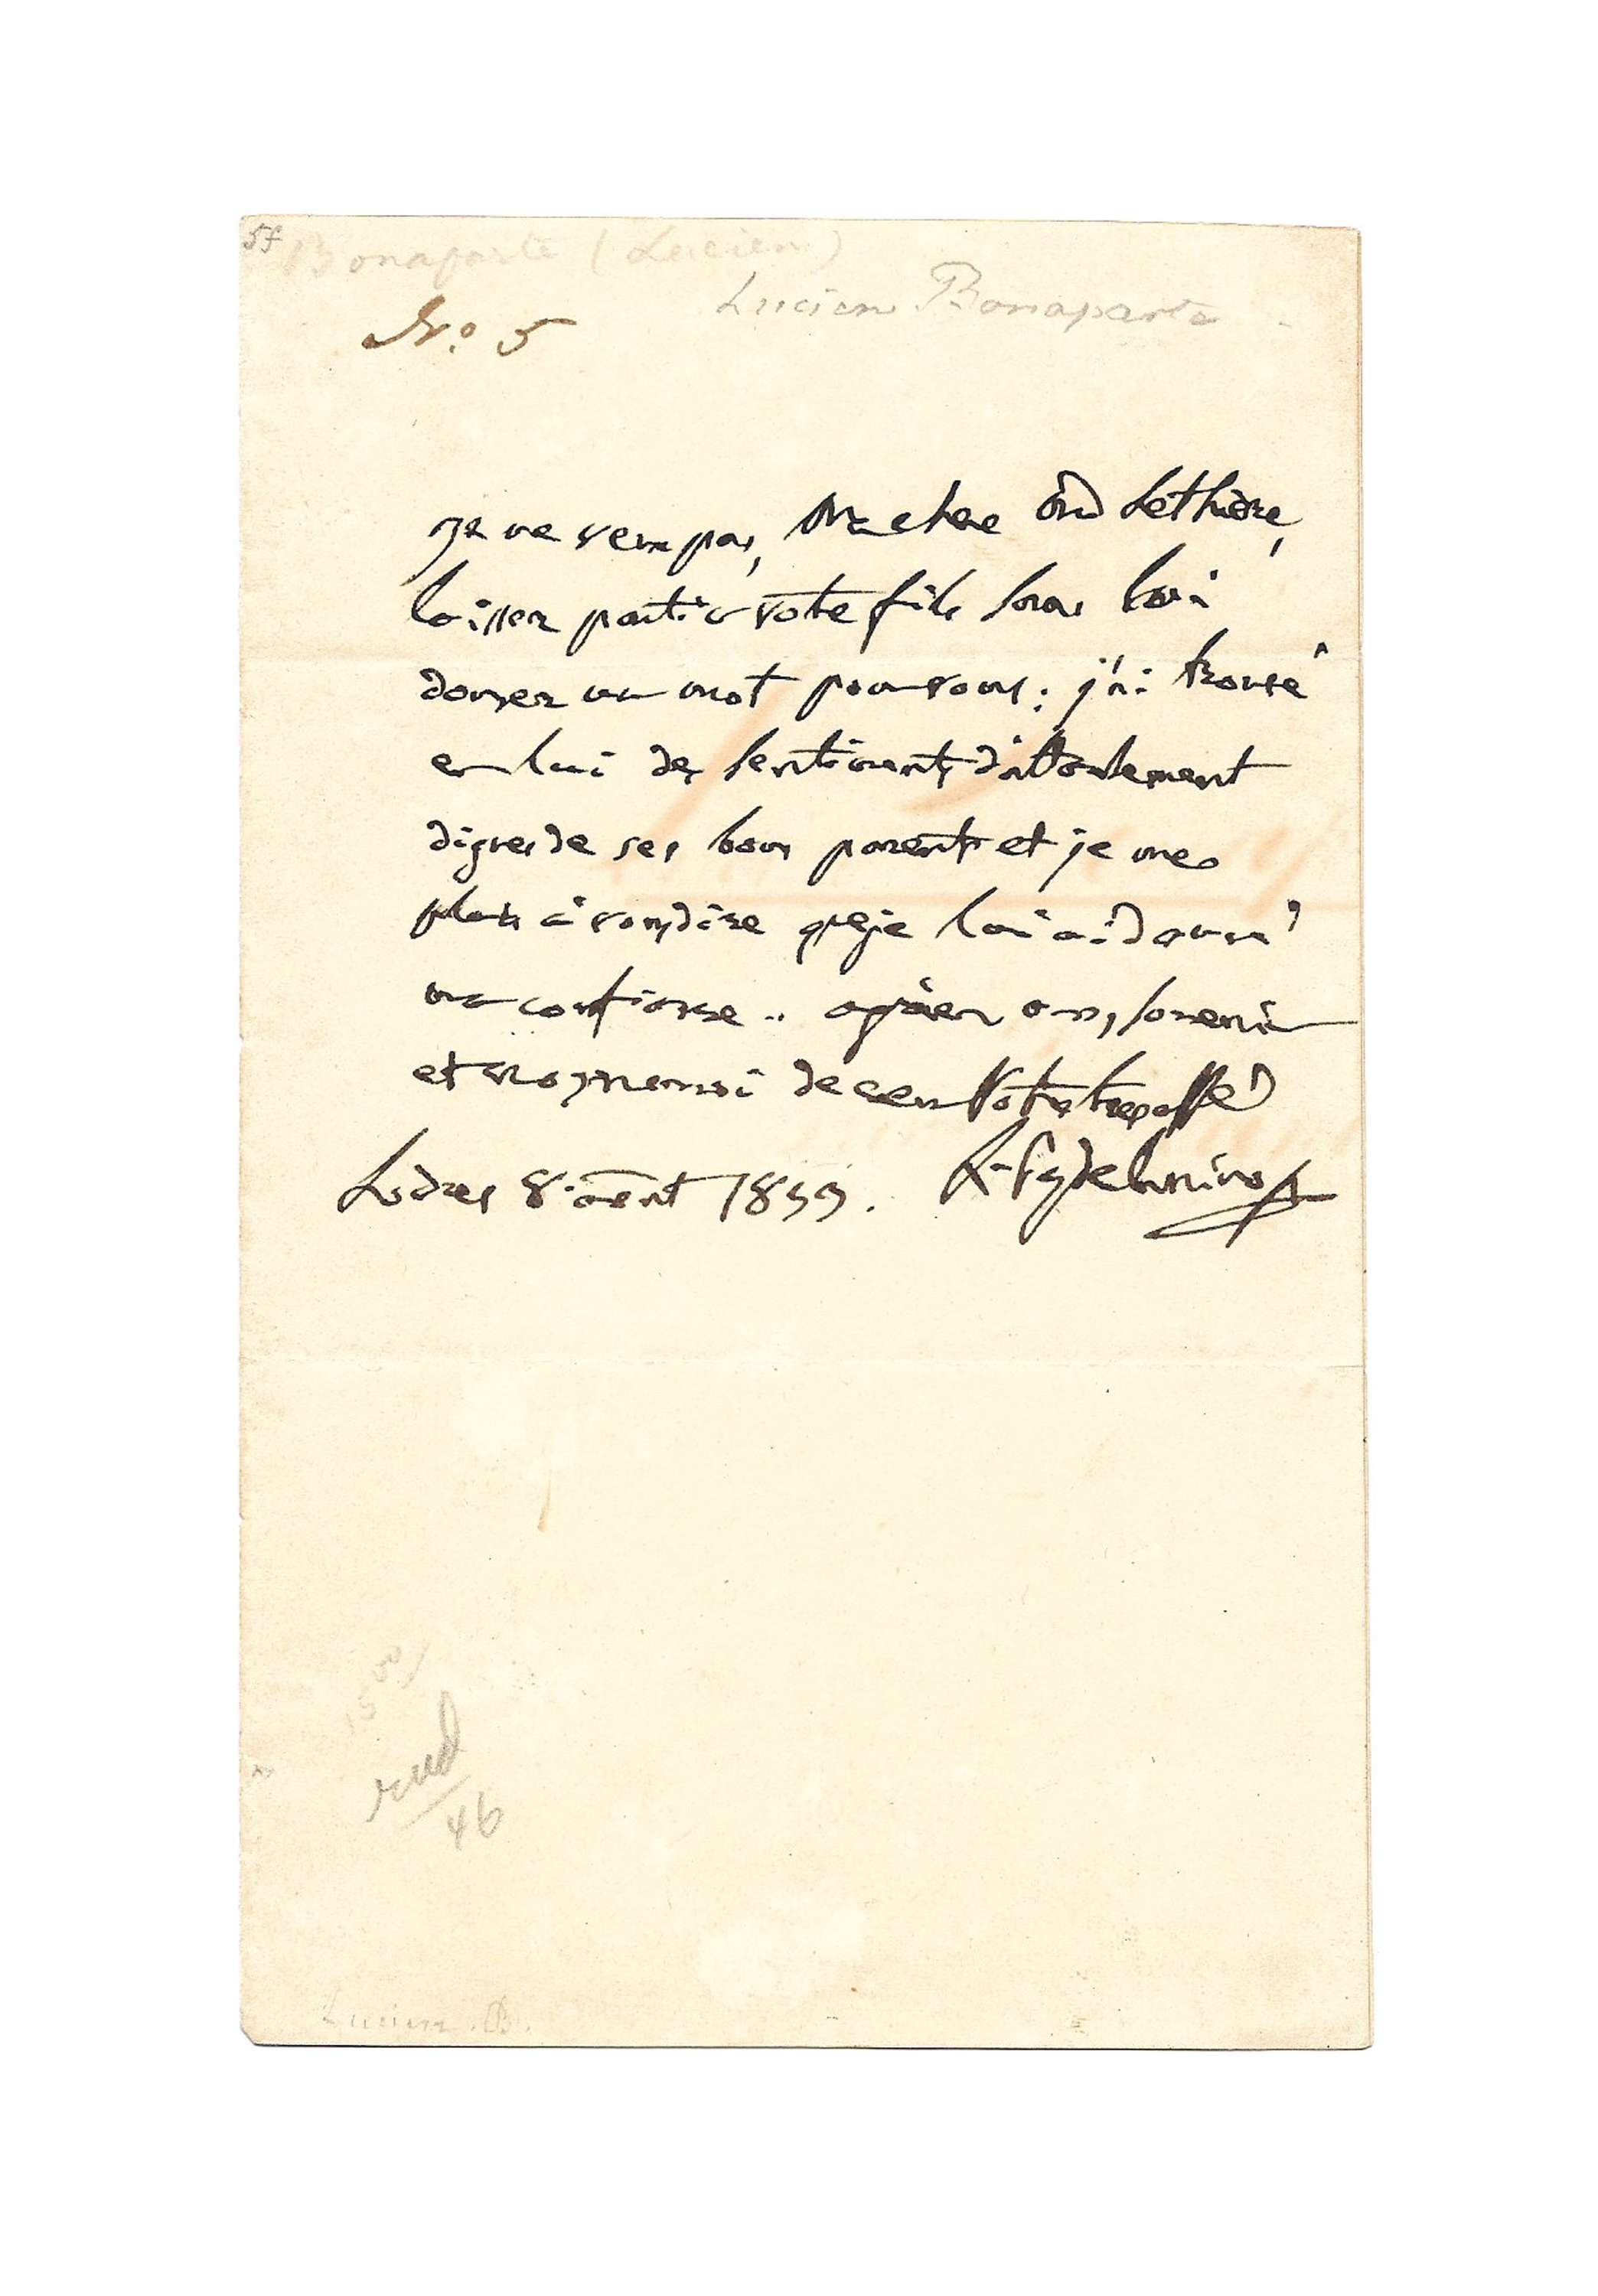 5f
Bonaparte (Lucien)
Lucien Bonaparte
No. 5
Je ne veux pas, Ma chere Lethière,
laisser partir votre fils sans lui
donner un mot pour vous: j'ai trouvé
en lui des sentiments d'attachement
dignes de ses bons parents et je me
plais à vous dire que je lui ai donné
ma confiance..
et moi aussi de ceux Votre
Londres 8 août 1833.
46
Lucien. B.